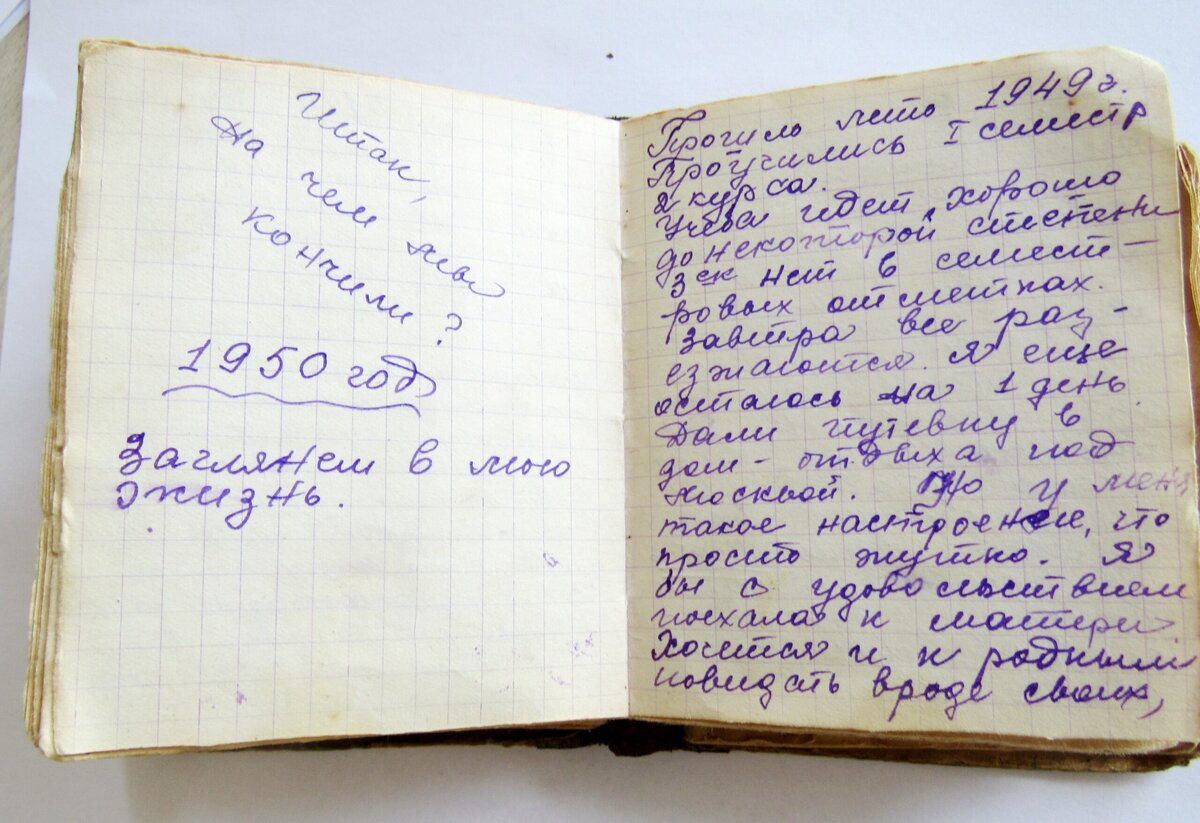 Итак,
на чем мы
кончили?
1950 год
Заглянем в мою
жизнь.
Прошло лето 1949 г.
Проучились I семестр
2 курса.
Учеба идет хорошо
до некоторой степени
зек нет в семест-
ровых отметках.
Завтра все раз-
езжаются. Я еще
осталось на 1 день.
Дали путевку в
дом-отдыха под
Москвой. Но у меня
такое настроение, что
просто жутко. Я
бы с удовольствием
поехала к матери.
Хочется и к родным
повидать вроде своих,